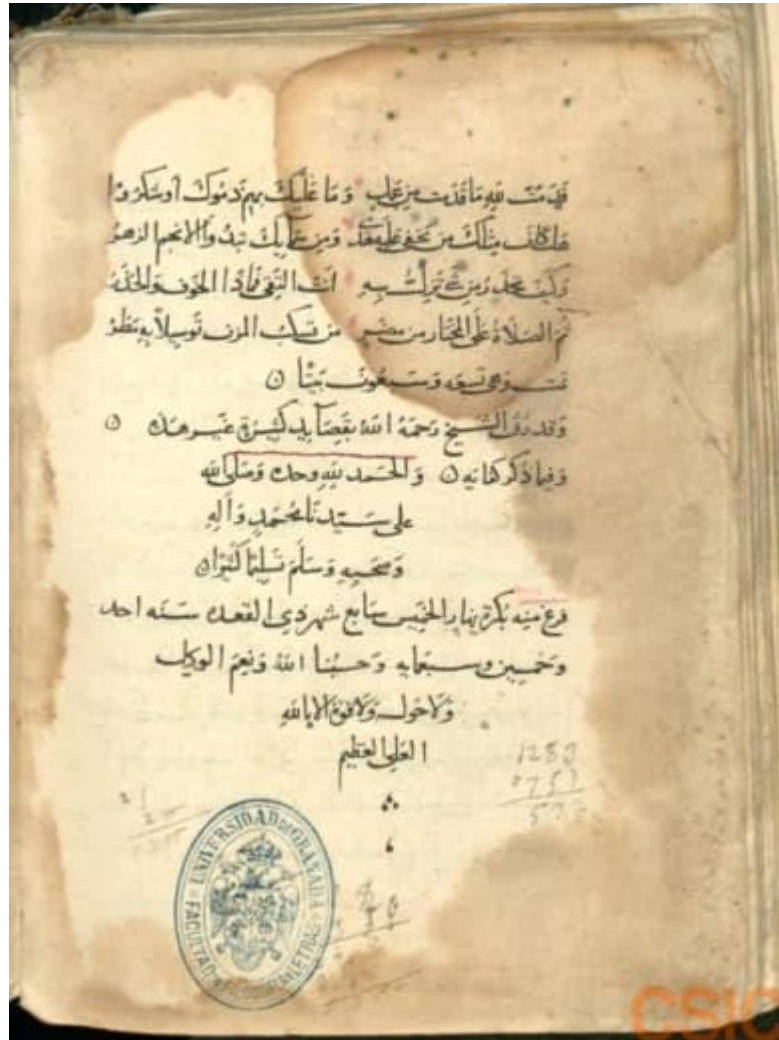 قدمت لله ما قدمت من عمل وما عليك بهم ذموك أو شكروا
هل كان مثلك من يخفى عليه ومن تبدو الأنجم الزهر
وكيف يحذر من شيء تزل به أنت التقي فماذا الخوف والحذر
ثم الصلاة على المختار من مضر من نسكب المزن توسلا به مطر
تمت وهي تسعة وسبعون بيتا
وقد رثى الشيخ رحمه الله بقصايد كثيرة غير هذه
وفيما ذكر كفاية والحمد لله وحده وصلى الله
على سيدنا محمد وآله
وصحبه وسلم تسليما كثيرا
فرغ منه بكرة نهار الخميس سابع شهر ذي القعده سنه احد
وخمسين وسبعمايه وحسبنا الله ونعم الوكيل
ولا حول ولا قوة الا بالله
العلي العظيم
1283
0751
UNIVERSIDAD DE GRANADA
FACULTAD LETRAS
CSIC